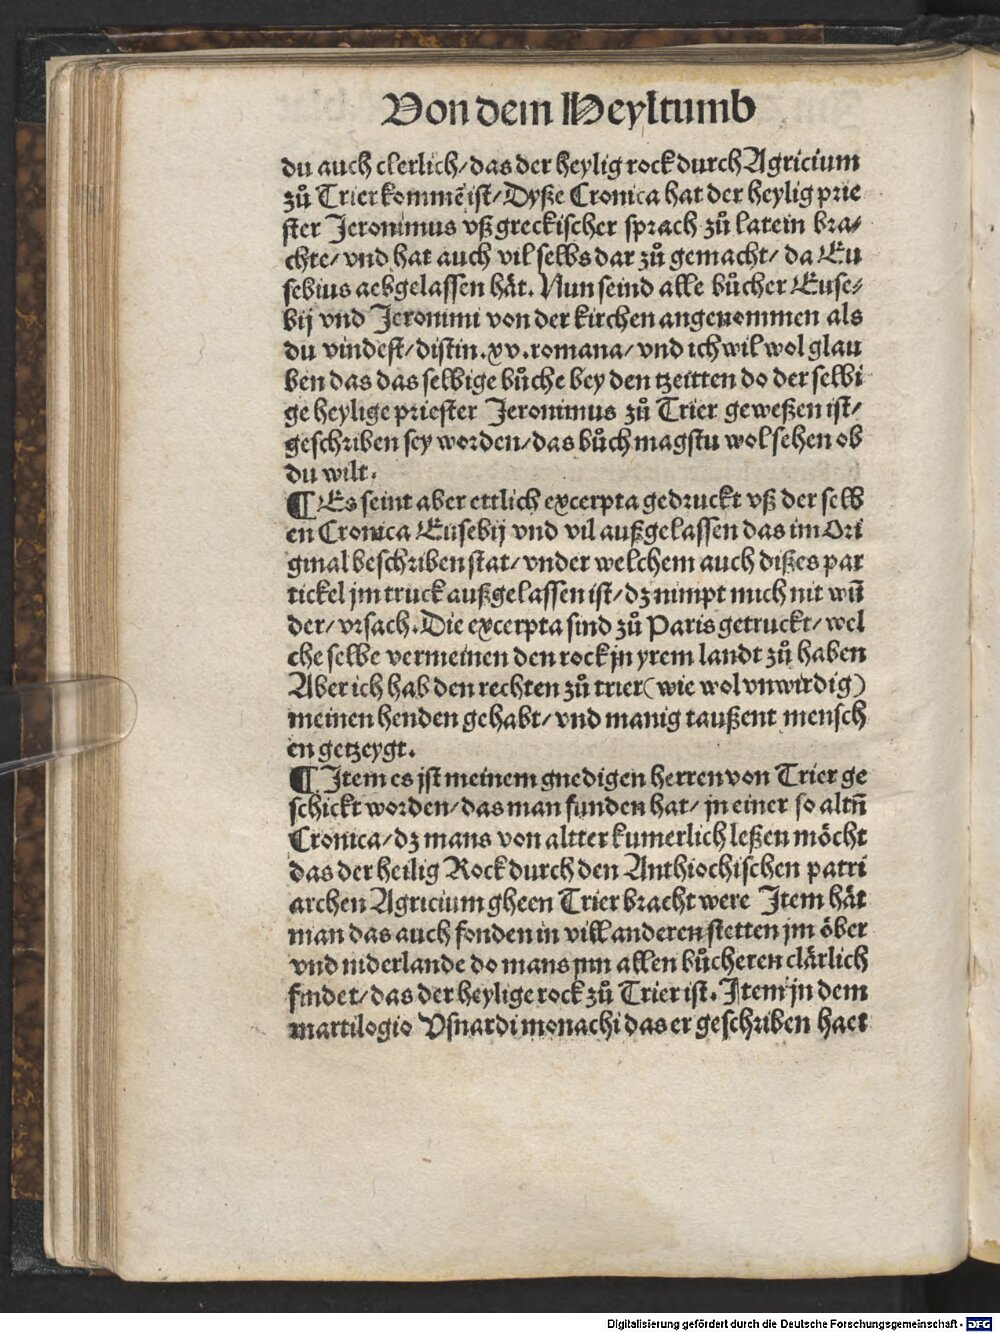 Von dem Heyltumb
du auch clerlich/das der heylig rock durch Agricium
zů Trier kommē ist/Dyße Cronica hat der heylig prie
ster Jeronimus vß greckischer sprach zů latein bra⸗
chte/vnd hat auch vil selbs dar zů gemacht/da Eu
sebius aebgelassen hăt. Nun seind alle bůcher Euse⸗
bij vnd Jeronimi von der kirchen angenommen als
du vindest/distin.xv.romana/vnd ich wil wol glau
ben das das selbige bůche bey den tzeitten do der selbi
ge heylige priester Jeronimus zů Trier geweßen ist/
geschriben sey worden/das bůch magstu wol sehen ob
du wilt.
¶ Es seint aber ettlich excerpta gedruckt vß der selb
en Cronica Eusebij vnd vil außgelassen das im Ori
ginal beschriben stat/vnder welchem auch dißes par
tickel jm truck außgelassen ist/dz nimpt mich nit wū
der/vrsach.Die excerpta sind zů Paris getruckt/wel
che selbe vermeinen den rock jn yrem landt zů haben
Aber ich hab den rechten zů trier(wie wol vnwirdig)
meinen henden gehabt/vnd manig taußent mensch
en getzeygt.
¶ Item es jst meinem gnedigen herren von Trier ge
schickt worden/das man funden hat/jn einer so altn̄
Cronica/dz mans von altter kumerlich leßen mŏcht
das der heilig Rock durch den Anthiochischen patri
archen Agricium gheen Trier bracht were Item hăt
man das auch fonden in vill anderen stetten jm ŏber
vnd niderlande do mans jnn allen bůcheren clărlich
findet/das der heylige rock zů Trier ist. Item jn dem
martilogio Vsnardi monachi das er geschriben haet
Digitalisierung gefördert durch die Deutsche Forschungsgemeinschaft - DFG